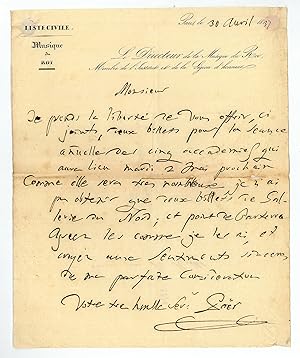 LISTE CIVILE.
Musique
du
ROI
Paris le 30 avril 1837
Le Directeur de la Musique du Roi,
Membre de l'Institut et de la Légion d'honneur
Monsieur
Je prends la liberté de vous offrir, ci
joints, deux billets pour la seance
annuelle des cinq academies qui
aura lieu mardi 2 mai prochain
Comme elle sera tres nombreuse, je n'ai
pu obtenir que deux billets de Gal-
lerie du Nord; et point de
Agréez les comme je les ai, et
croyez aux sentiments sinceres
de ma parfaite consideration
Votre tres humble serv. Paër